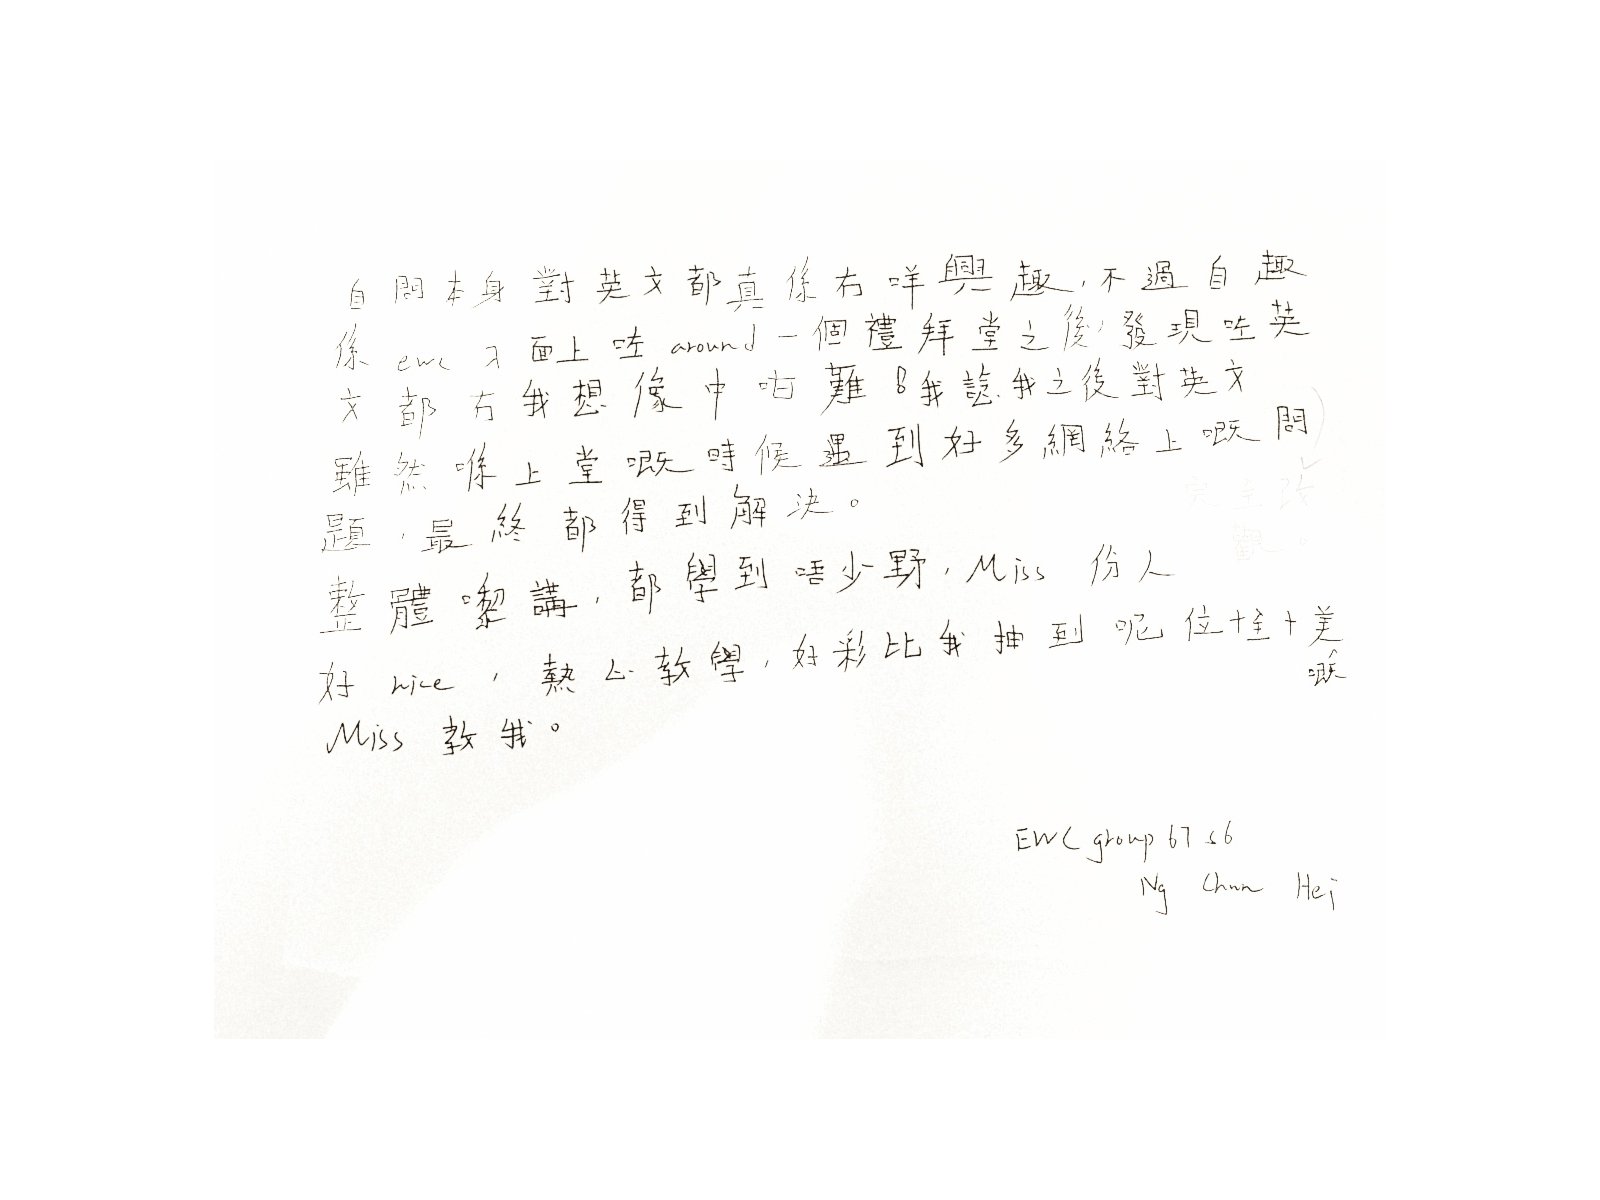 自問本身對英文都真係冇咩興趣，不過自趣
係 ewc 入面上咗 around 一個禮拜堂之後，發現咗英
文都冇我想像中咁難 我諗我之後對英文
雖然喺上堂嘅時候遇到好多網絡上嘅問
題，最終都得到解決。
整體嚟講，都學到唔少野，Miss 份人
好 nice，熱心教學，好彩比我抽到呢位十全十美
嘅
Miss 教我。
EWC group 67 s6
Ng Chun Hei